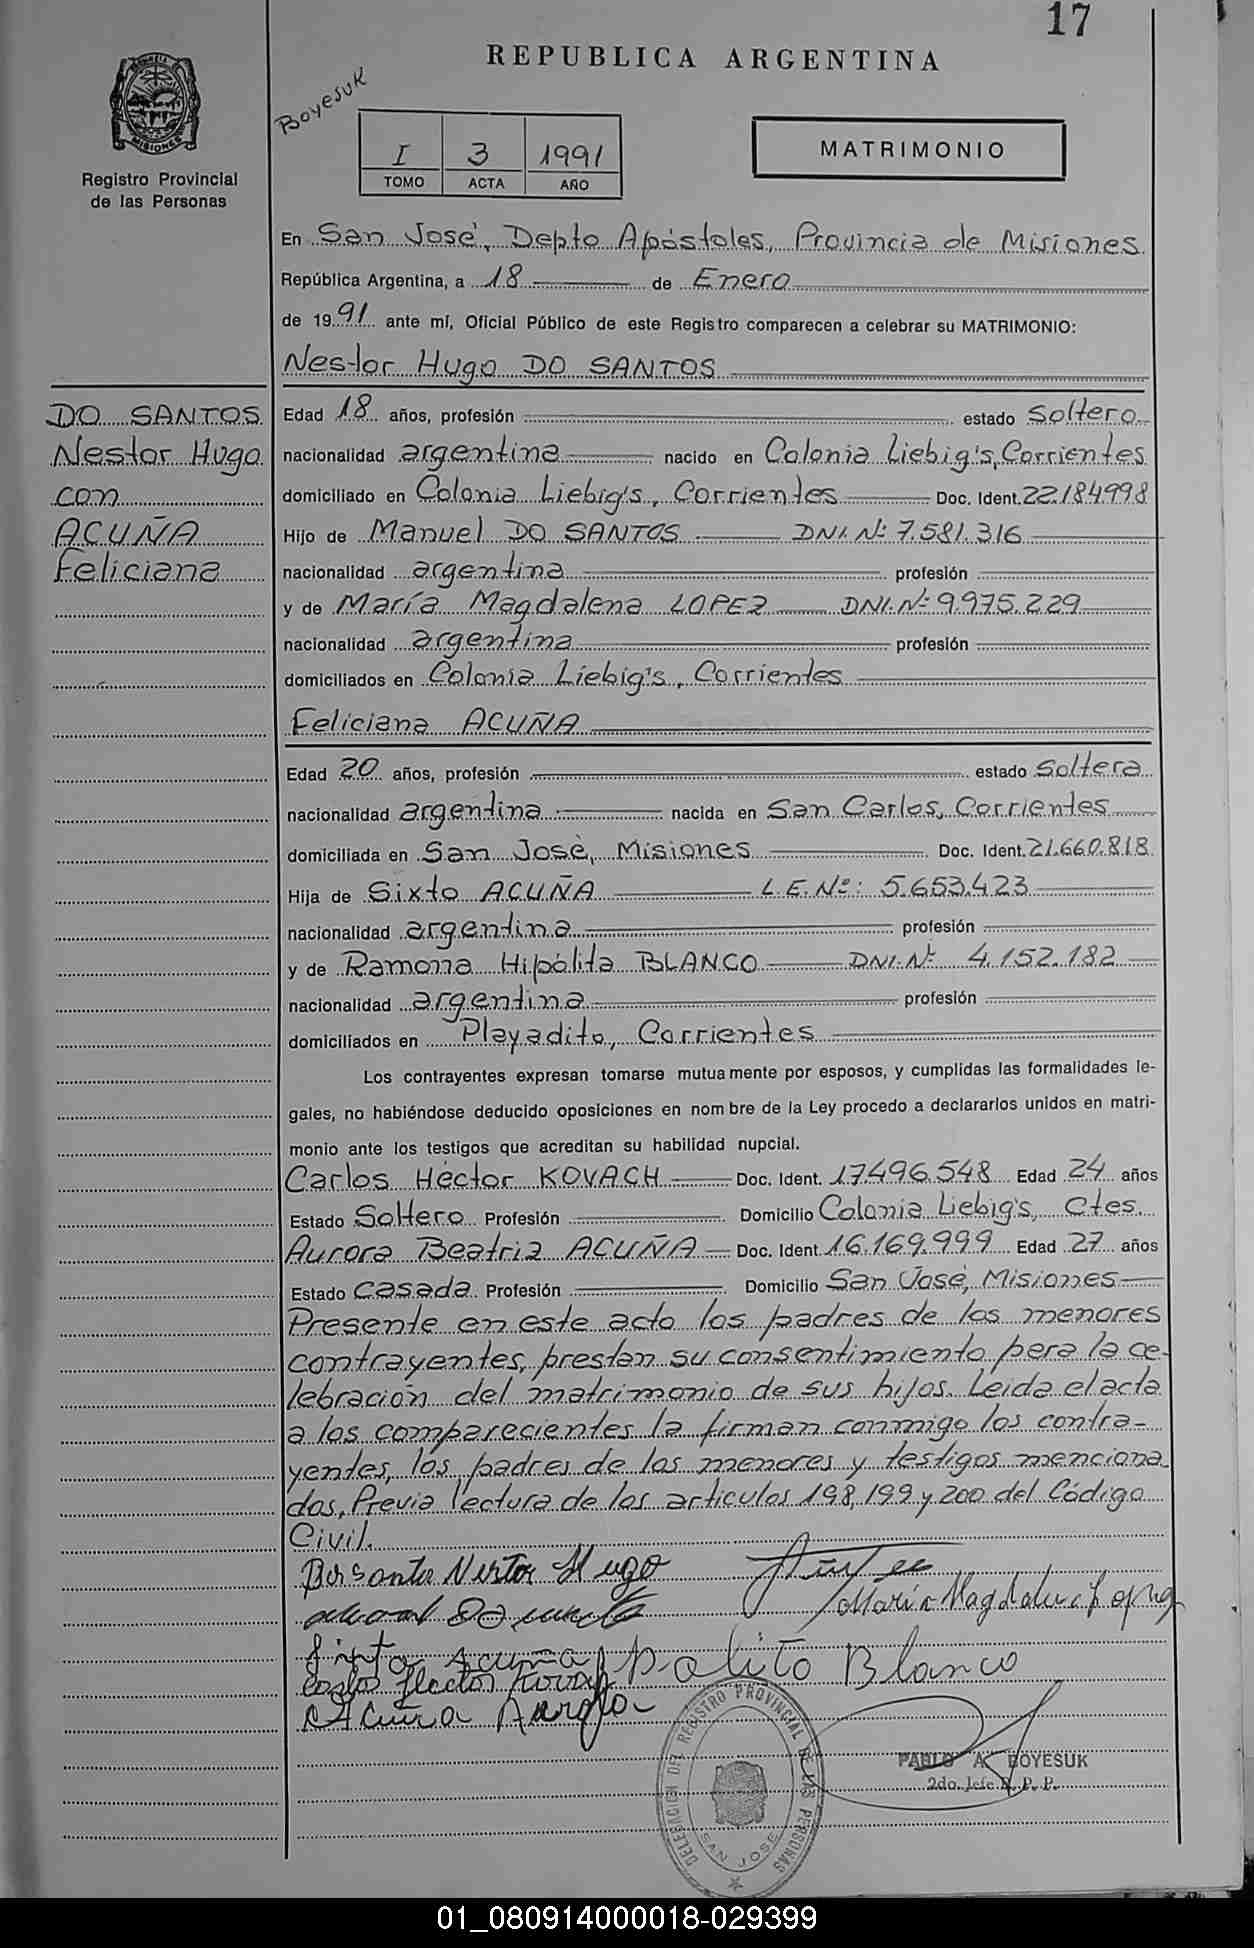 17
REPUBLICA ARGENTINA
Boyesuk
MISIONES
Registro Provincial
de las Personas
I 3 1991
TOMO ACTA AÑO
MATRIMONIO
En San José, Depto Apóstoles, Provincia de Misiones
República Argentina, a 18 de Enero
de 1991 ante mí, Oficial Público de este Registro comparecen a celebrar su MATRIMONIO:
Nestor Hugo DO SANTOS
DO SANTOS
Nestor Hugo
con
ACUÑA
Feliciana
Edad 18 años, profesión estado Soltero
nacionalidad argentina nacido en Colonia Liebig's, Corrientes
domiciliado en Colonia Liebig's, Corrientes Doc. Ident. 22.184.998
Hijo de Manuel DO SANTOS DNI. Nº 7.581.316
nacionalidad argentina profesión
y de María Magdalena LOPEZ DNI. Nº 9.975.229
nacionalidad argentina profesión
domiciliados en Colonia Liebig's, Corrientes
Feliciana ACUÑA
Edad 20 años, profesión estado Soltera
nacionalidad argentina nacida en San Carlos, Corrientes
domiciliada en San José, Misiones Doc. Ident. 21.660.818
Hija de Sixto ACUÑA L.E. Nº: 5.653.423
nacionalidad argentina profesión
y de Ramona Hipólita BLANCO DNI. Nº 4.152.182
nacionalidad argentina profesión
domiciliados en Playadito, Corrientes
Los contrayentes expresan tomarse mutuamente por esposos, y cumplidas las formalidades le-
gales, no habiéndose deducido oposiciones en nombre de la Ley procedo a declararlos unidos en matri-
monio ante los testigos que acreditan su habilidad nupcial.
Carlos Héctor KOVACH Doc. Ident. 17.496.548 Edad 24 años
Estado Soltero Profesión Domicilio Colonia Liebig's, Ctes.
Aurora Beatriz ACUÑA Doc. Ident. 16.169.999 Edad 27 años
Estado Casada Profesión Domicilio San José, Misiones
Presente en este acto los padres de los menores
contrayentes, prestan su consentimiento para la ce-
lebración del matrimonio de sus hijos. Leida el acta
a los comparecientes la firman conmigo los contra-
yentes, los padres de los menores y testigos menciona
dos, Previa lectura de los articulos 198, 199 y 200 del Código
Civil.
Nestor Hugo
Maria Magdalena Lopez
Sixto Acuña
polito Blanco
Carlos Hector Kovach
Acuña
DELEGACION DEL REGISTRO PROVINCIAL DE LAS PERSONAS
SAN JOSE
PABLO A. BOYESUK
2do. Jefe R. P. P.
01_080914000018-029399